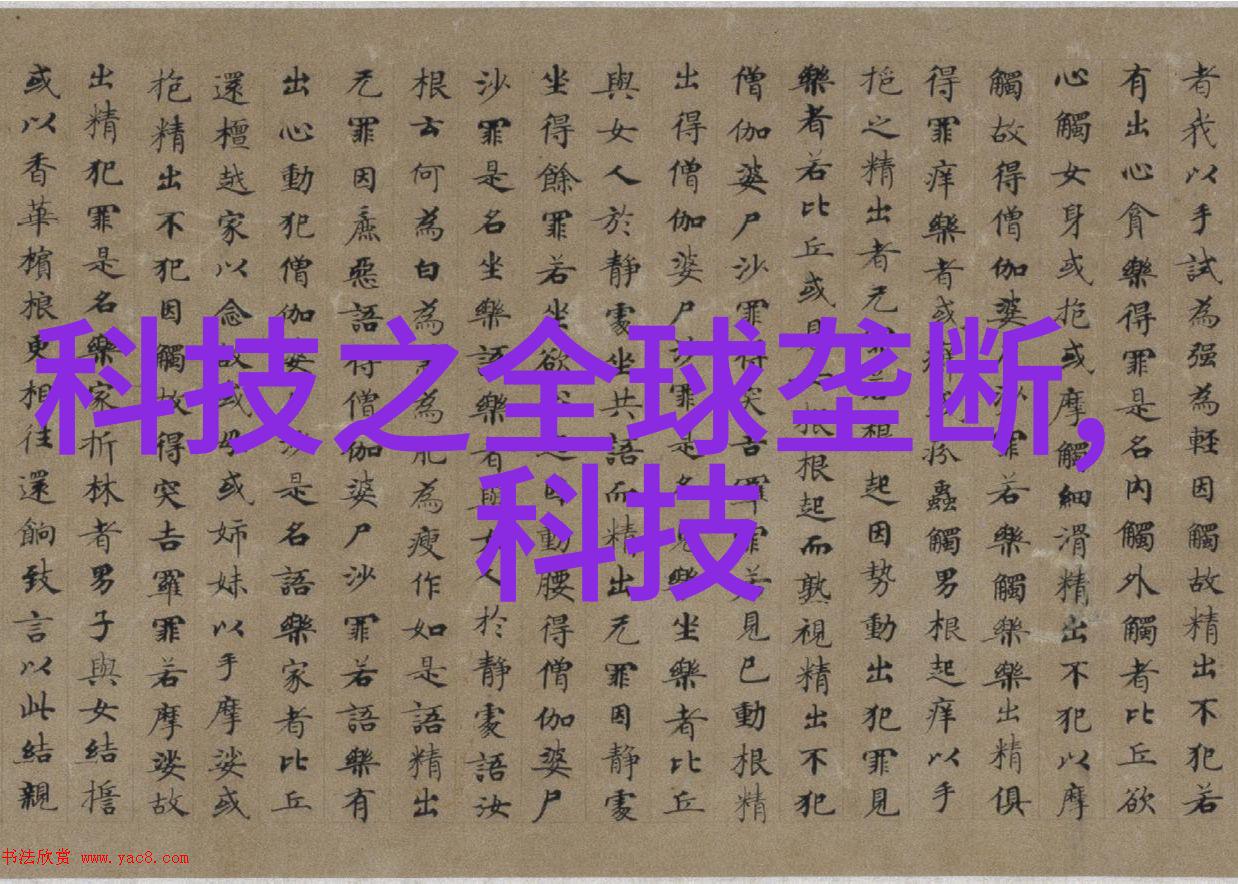 者我以手試為强為輕因觸故精出不犯若
有出心貪樂得罪是名内觸外觸者比丘欲
心觸女身或抱或摩觸細滑精出不犯以摩
觸故得僧伽婆尸沙罪若樂觸樂樂出精俱
得罪痒樂者或蟲觸男根起痒以手
捉之精出者无根起因勢動出犯罪見
樂者若比丘或見根根起而熟視精出不犯
僧伽婆尸沙罪得突吉罪罪若見已動根精
出得僧伽婆尸沙罪是名見樂坐樂者比丘
與女人於静處坐共語而精出无罪因静處
坐得餘罪若坐欲動腰得僧伽婆尸
沙罪是名坐樂語樂者與女人於静處語汝
根云何為白為為肥為瘦作如是語精出
无罪因麁惡語得僧伽婆尸沙罪若語樂有
出心動犯僧伽婆尸沙是名語樂家者比丘
還檀越家以念故或母或姉妹以手摩娑或
抱精出不犯因觸故得突吉罪罪若摩娑故
出精犯罪是名樂家折林者男子與女結擔
或以香華檳榔更相往還餉致言以此結親
科技之全球垄断,
科技
书法欣赏 www.yac8.com